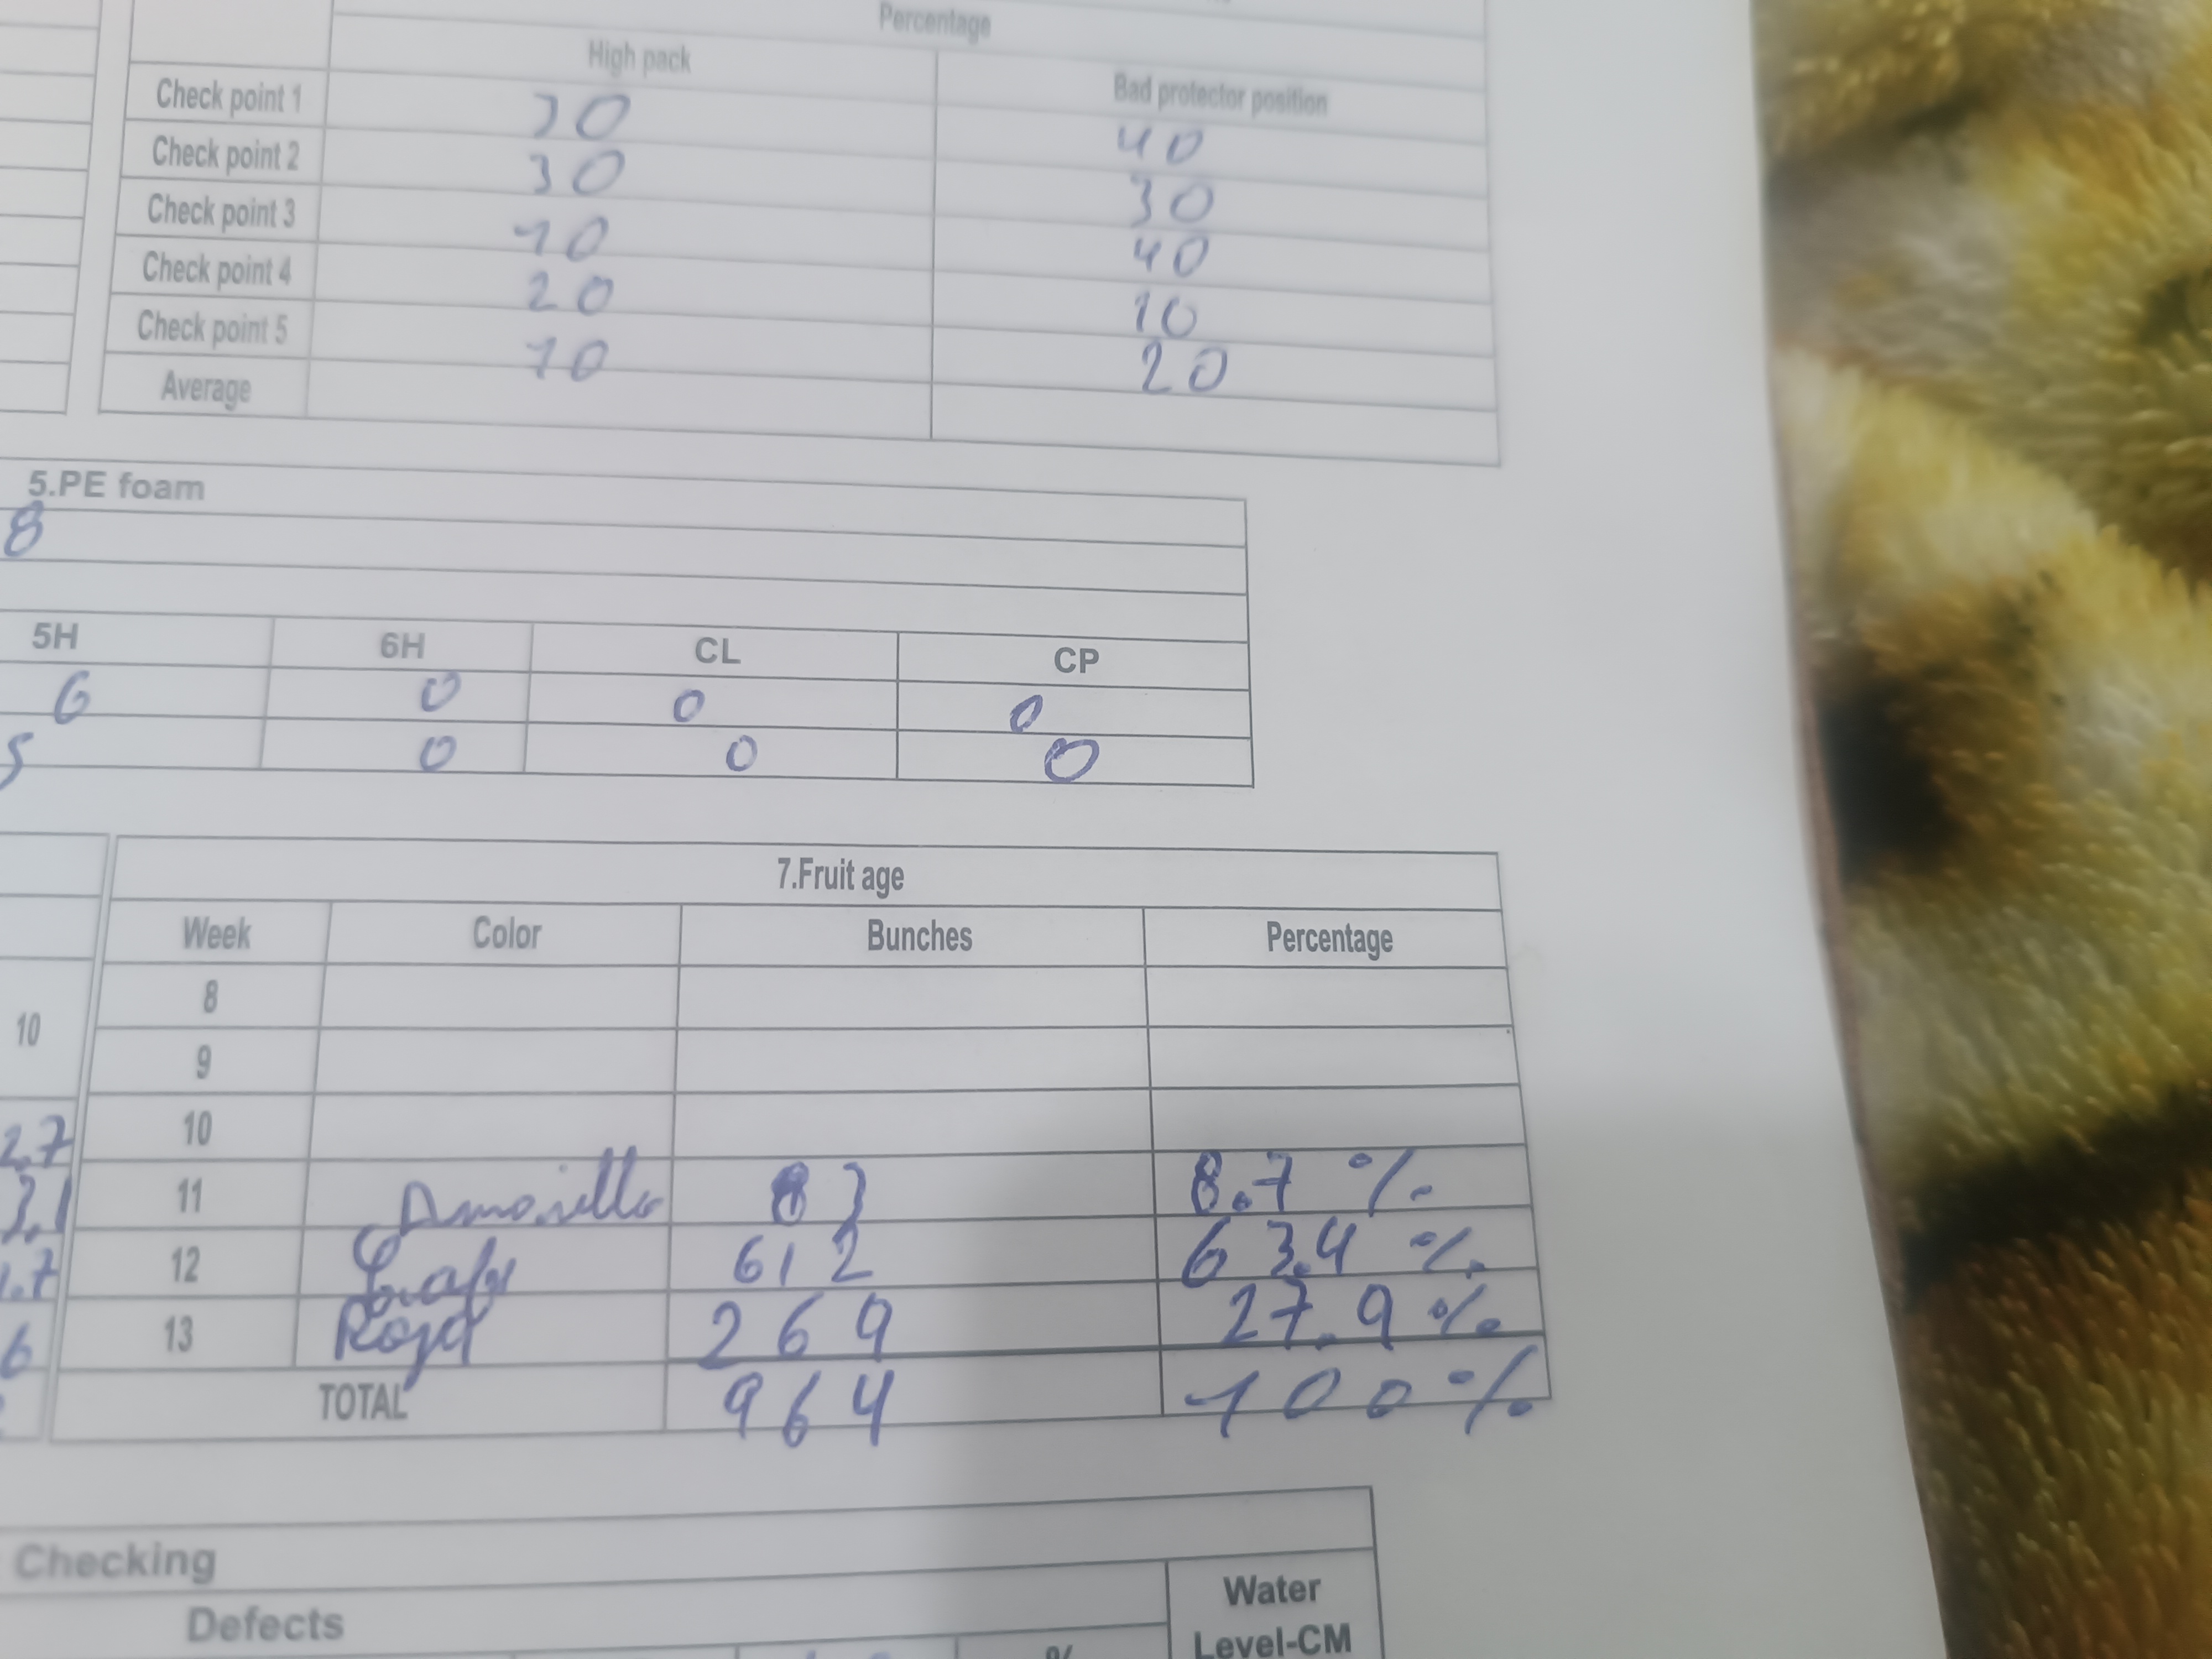 Percentage
High pack Bad protector position
Check point 1 30 40
Check point 2 30 30
Check point 3 10 40
Check point 4 20 10
Check point 5 10 20
Average
5.PE foam
8
5H 6H CL CP
6 0 0 0
5 0 0 0
7.Fruit age
Week Color Bunches Percentage
8
10 9
10
2.7 11 Amarillo 83 8.7 %
3.1 12 612 63.4 %
.7 13 Roja 269 27.9 %
6 TOTAL 964 100 %
Checking
Defects Water
Level-CM
%